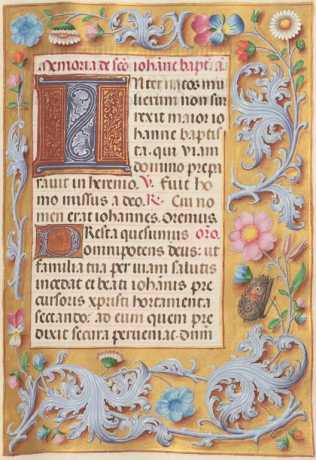 Memoria de sco iohane baptā.
Inter natos
mulierum non sur
rexit maior io
hanne baptis
ta. qui viam
domino prepa
ravit in heremo. V. Fuit ho
mo missus a deo. R. Cui no
men erat iohannes. Oremus.
Presta quesumus oro.
omnipotens deus: ut
familia tua per viam salutis
incedat et beati iohannis pre
cursoris xpristi hortamenta
sectando: ad eum quem pre
dixit secura perveniat. Dnm